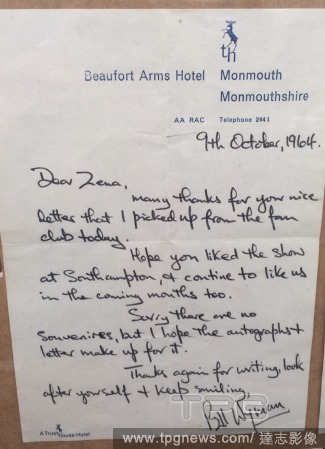 th
Beaufort Arms Hotel Monmouth
Monmouthshire
AA RAC Telephone 2441
9th October, 1964.
Dear Zena,
many thanks for your nice
letter that I picked up from the fan
club today.
Hope you liked the show
at Southampton, & contine to like us
in the coming months too.
Sorry there are no
souvenires, but I hope the autographs &
letter make up for it.
Thanks again for writing, look
after yourself & keep smiling.
Bill Wyman
A Trust House Hotel
TPG
www.tpgnews.com / 達志影像